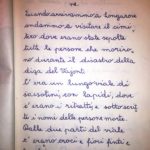 re.
Quando arrivammo a Longarone
andammo a visitare il cimi,
tero dove erano state sepolte
tutte le persone che moriro,
no durante il disastro della
diga del Vajont.
C'era un lungo viale di
sassolini, con lapidi, dove
c'erano i ritratti e sottoscrit,
ti i nomi delle persone morte.
Dalle due parti del viale
c'erano croci e fiori finti e